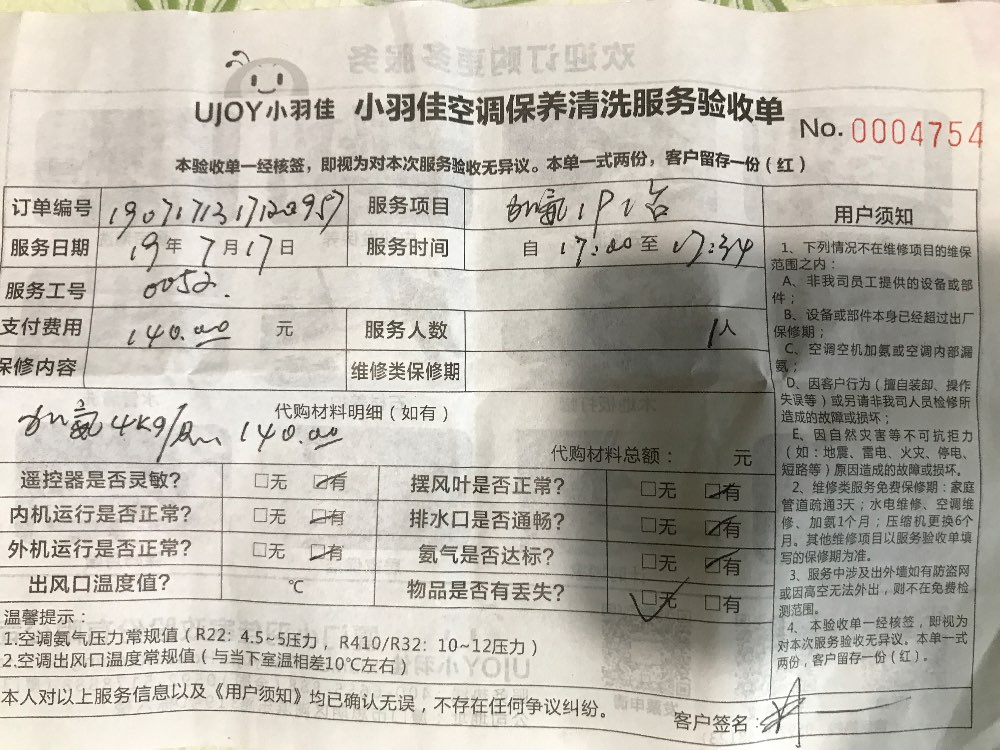 UJOY小羽佳 小羽佳空调保养清洗服务验收单
No. 0004754
本验收单一经核签，即视为对本次服务验收无异议。本单一式两份，客户留存一份（红）
订单编号 1907171317120957 服务项目 加氨1P1台
服务日期 19年7月17日 服务时间 自17:00至17:34
服务工号 0052.
支付费用 140.00 元 服务人数 1人
保修内容 维修类保修期
代购材料明细（如有）
加氨4kg 140.00
代购材料总额： 元
遥控器是否灵敏？ □无 □有 摆风叶是否正常？ □无 □有
内机运行是否正常？ □无 □有 排水口是否通畅？ □无 □有
外机运行是否正常？ □无 □有 氨气是否达标？ □无 □有
出风口温度值？ ℃ 物品是否有丢失？ □无 □有
温馨提示：
1.空调氨气压力常规值（R22：4.5~5压力，R410/R32：10~12压力）
2.空调出风口温度常规值（与当下室温相差10℃左右）
本人对以上服务信息以及《用户须知》均已确认无误，不存在任何争议纠纷。
客户签名：
用户须知
1、下列情况不在维修项目的维保
范围之内：
A、非我司员工提供的设备或部
件；
B、设备或部件本身已经超过出厂
保修期；
C、空调空机加氨或空调内部漏
氨；
D、因客户行为（擅自装卸、操作
失误等）或另请非我司人员检修所
造成的故障或损坏；
E、因自然灾害等不可抗拒力
（如：地震、雷电、火灾、停电、
短路等）原因造成的故障或损坏。
2、维修类服务免费保修期：家庭
管道疏通3天；水电维修、空调维
修、加氨1个月；压缩机更换6个
月。其他维修项目以服务验收单填
写的保修期为准。
3、服务中涉及出外墙如有防盗网
或因高空无法外出，则不在免费检
测范围。
4、本验收单一经核签，即视为
对本次服务验收无异议。本单一式
两份，客户留存一份（红）。